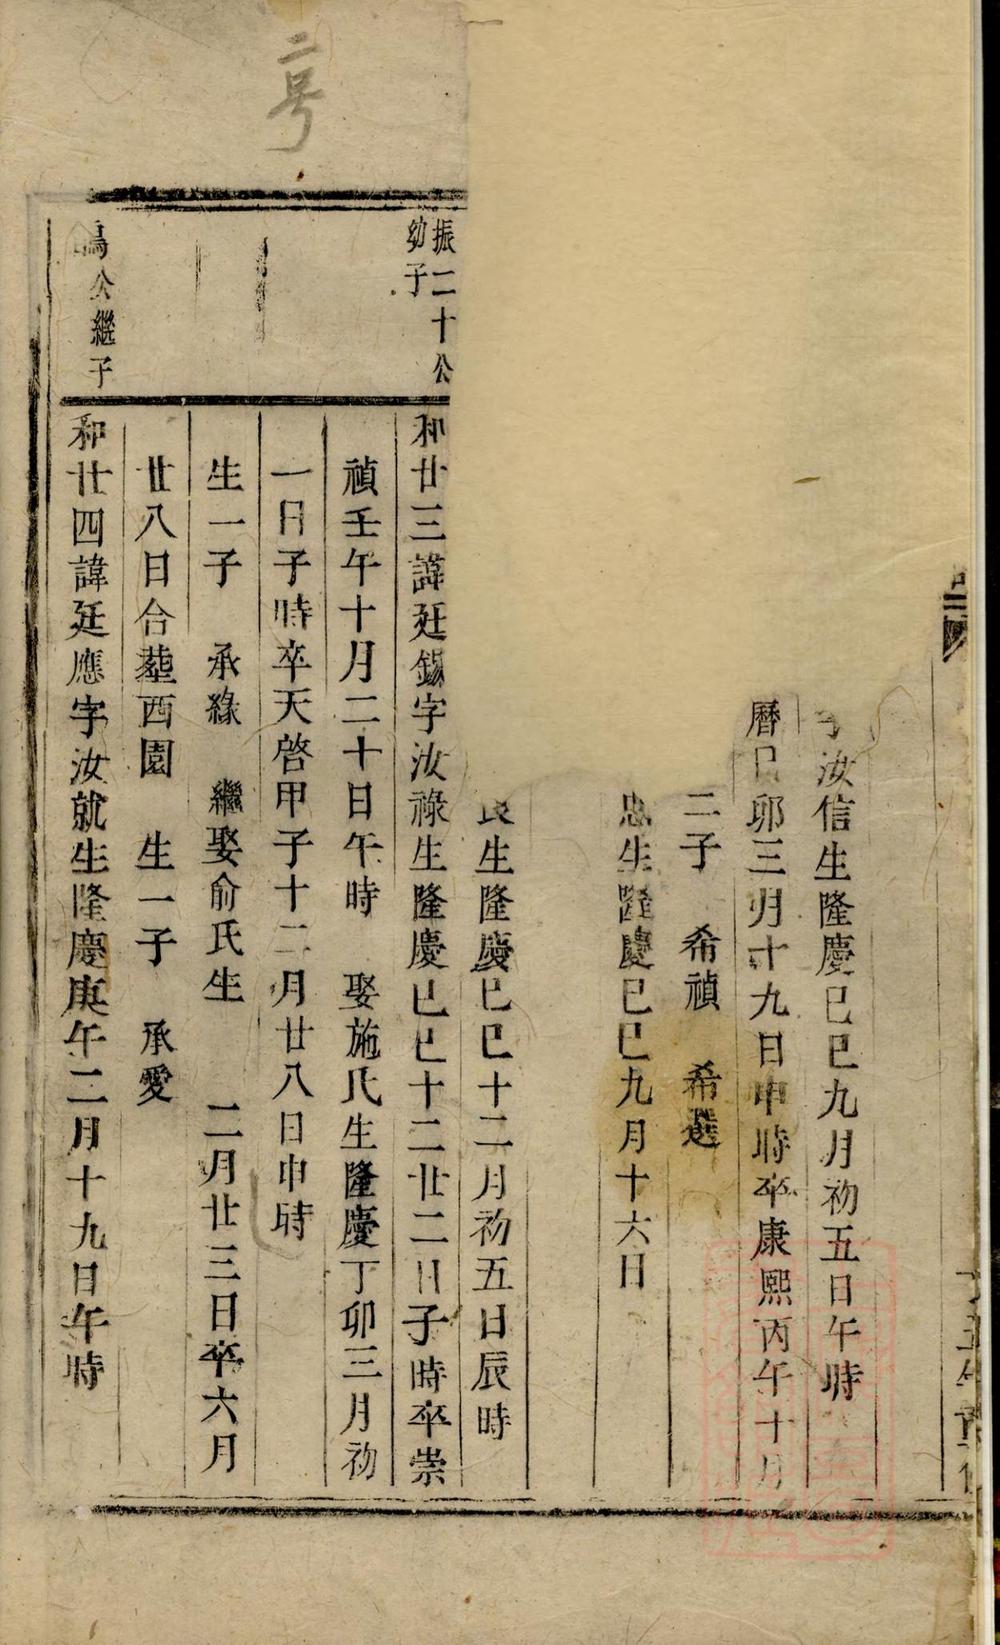 二号
汝信生隆慶巳巳九月初五日午時
曆巳卯三月十九日申時卒康熙丙午十月
二子　希禎　希選
忠生隆慶巳巳九月十六日
生隆慶巳巳十二月初五日辰時
振二十公
幼子
和廿三諱廷錫字汝祿生隆慶巳巳十二廿二日子時卒崇
禎壬午十月二十日午時　娶施氏生隆慶丁卯三月初
一日子時卒天啓甲子十二月廿八日申時
生一子　承緣　繼娶俞氏生　二月廿三日卒六月
廿八日合塟西園　生一子　承愛
公繼子
和廿四諱廷應字汝就生隆慶庚午二月十九日午時